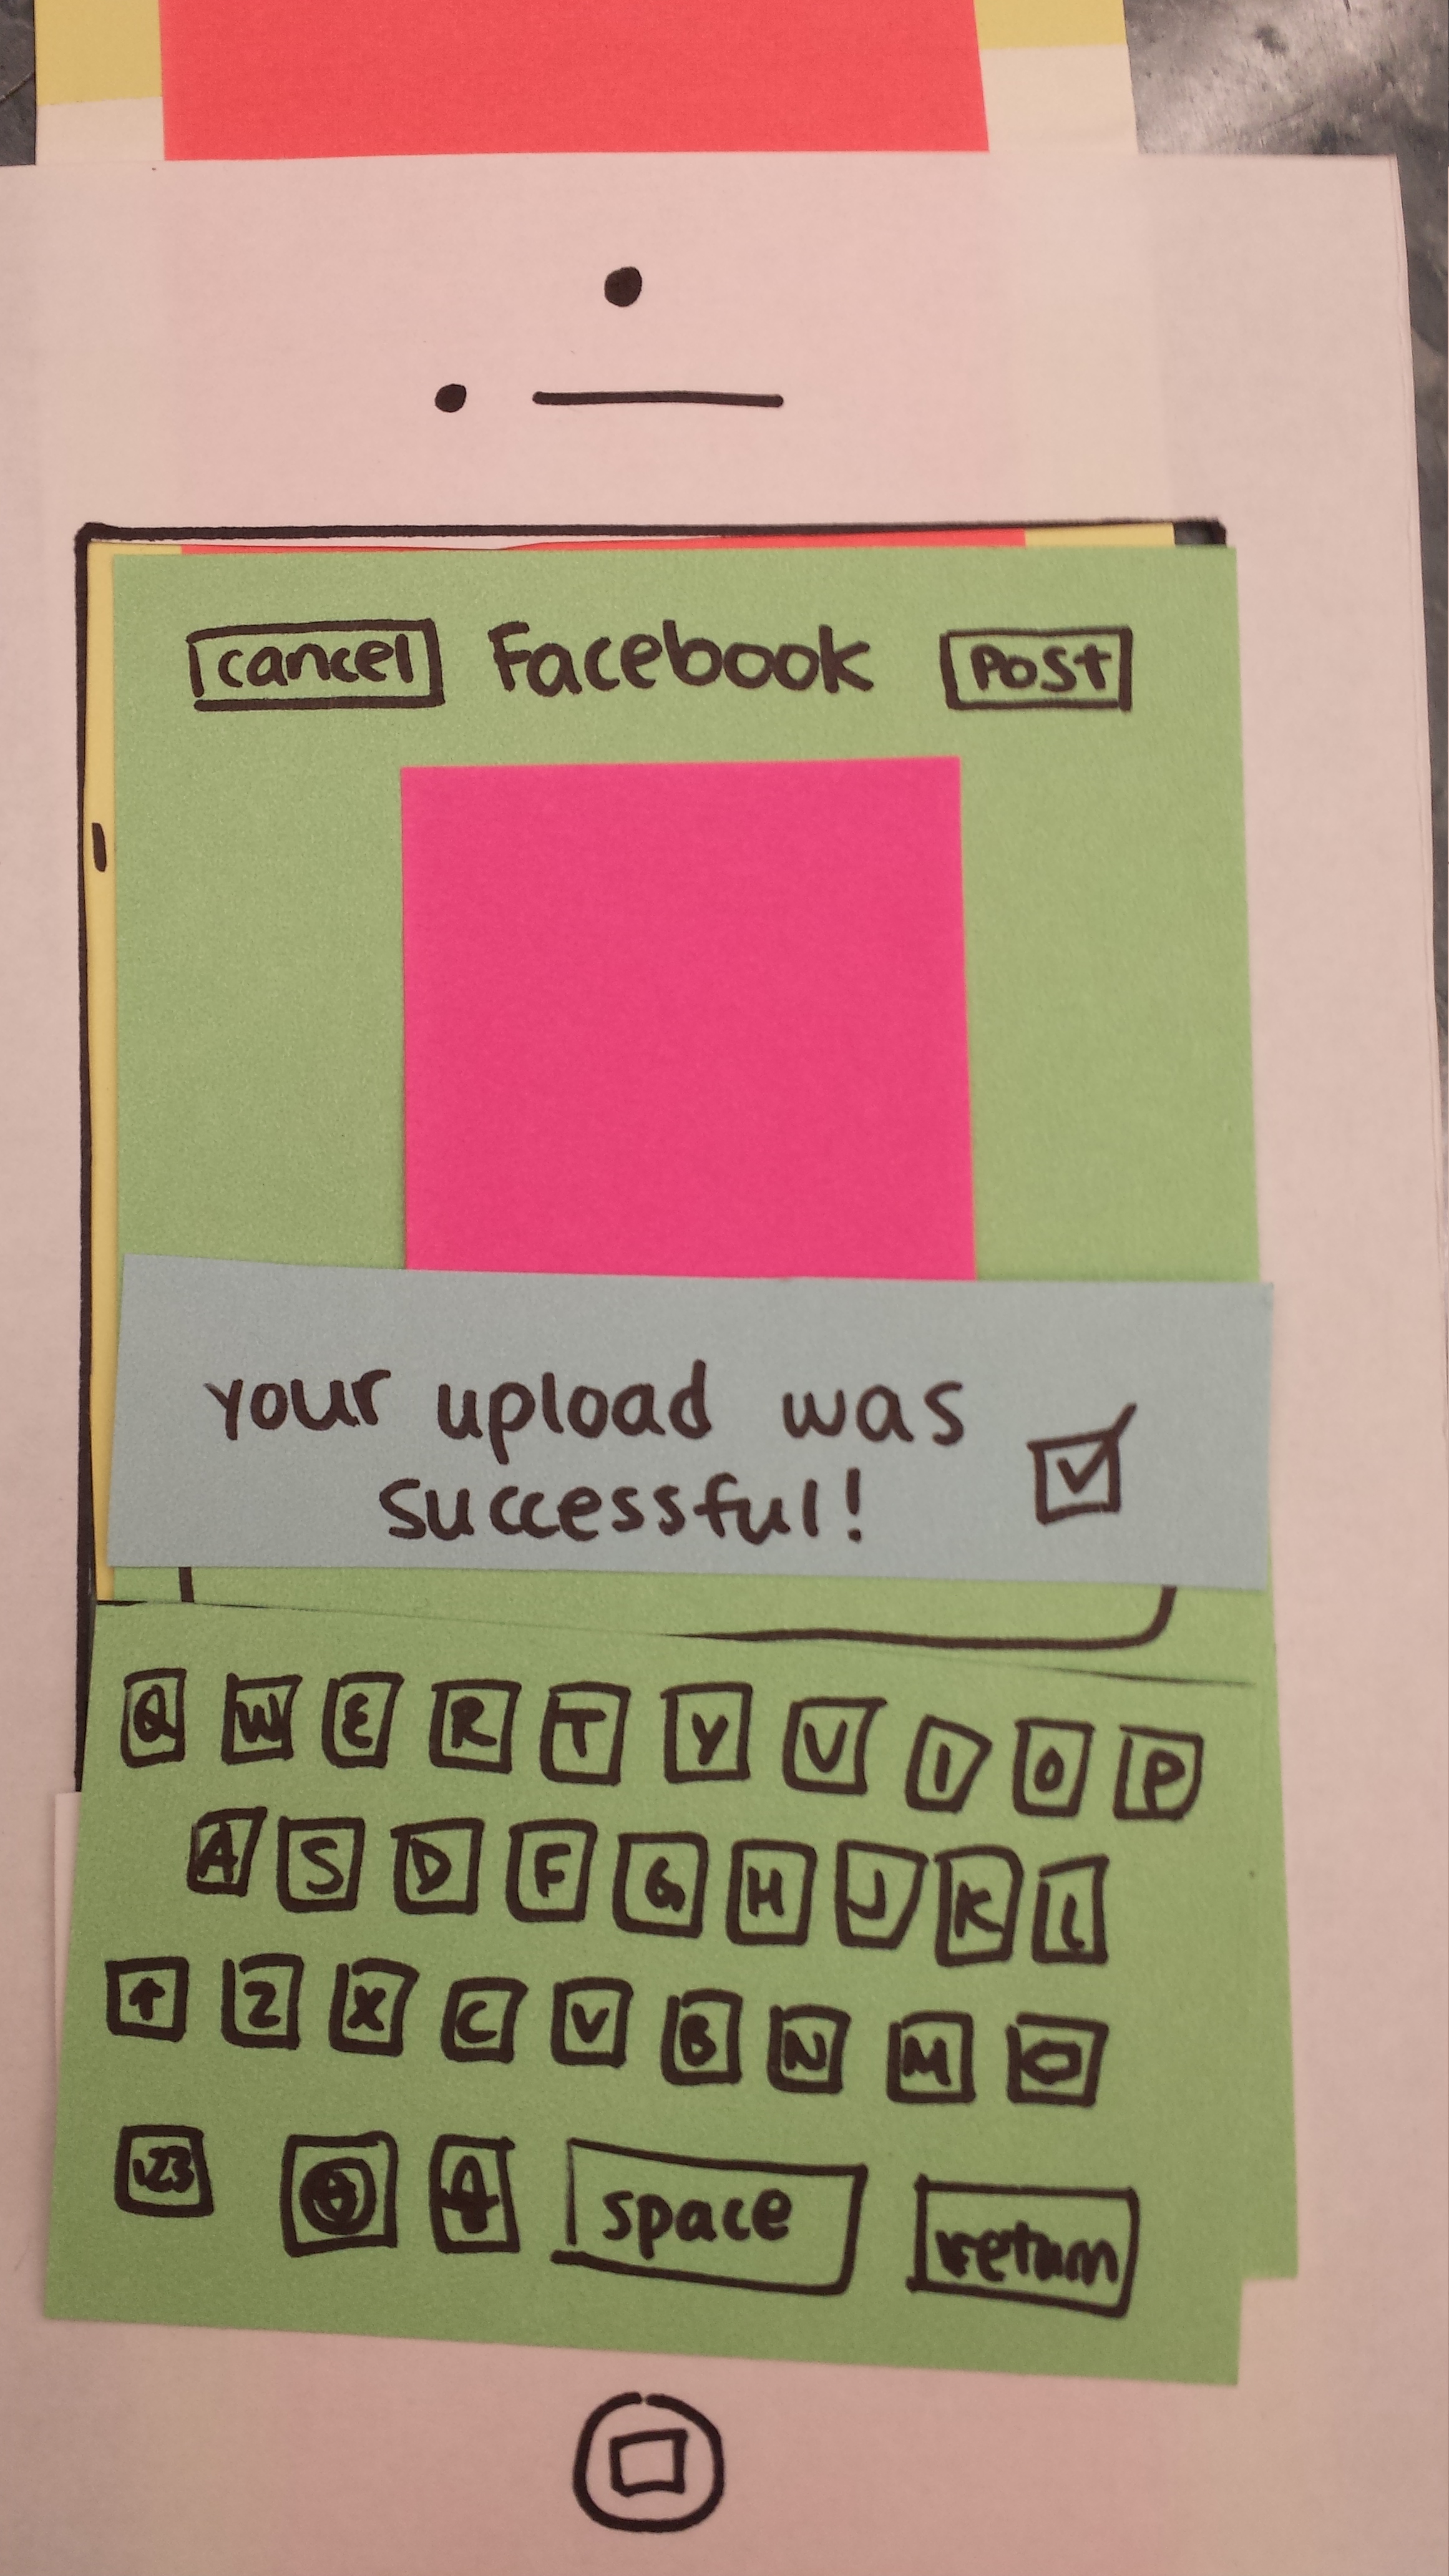 cancel Facebook Post
your upload was
successful!
Q W E R T Y U I O P
A S D F G H J K L
Z X C V B N M
123 space return